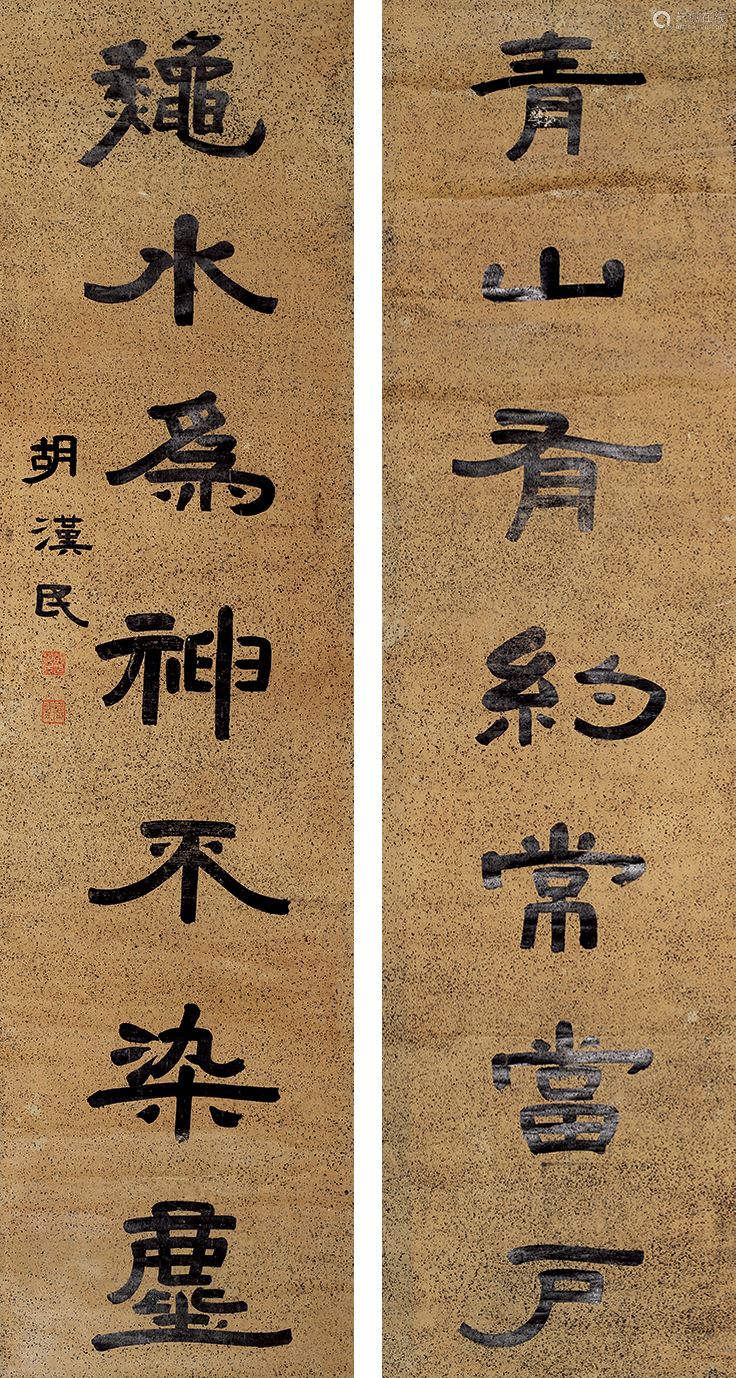 青山有約常當戶
龝水爲神不染塵
胡漢民